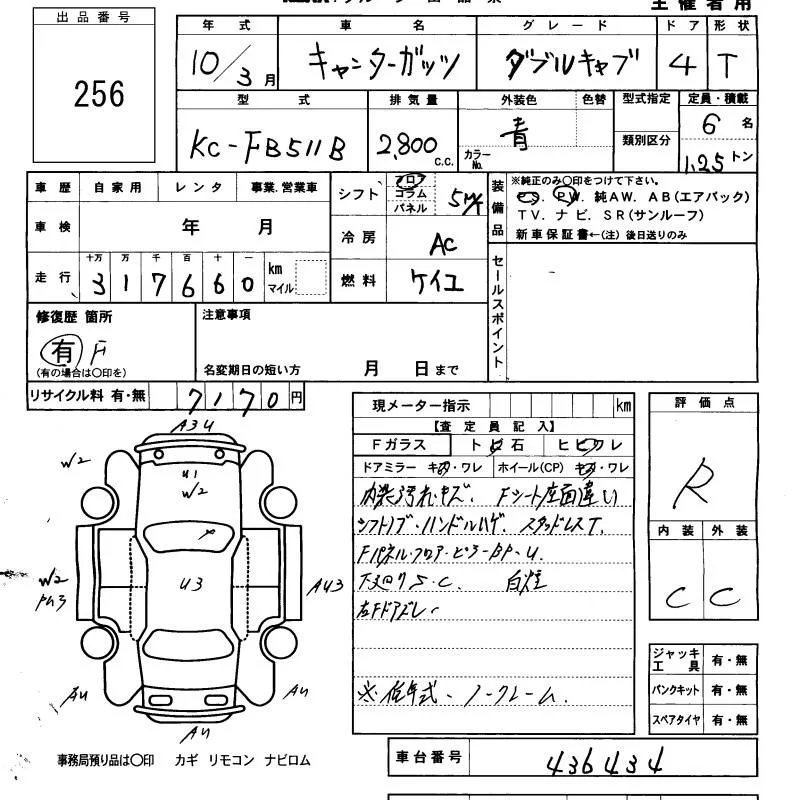 主催者用
出品番号
256
年式 車名 グレード ドア 形状
10/3月 キャンターガッツ ダブルキャブ 4 T
型式 排気量 外装色 色替 型式指定 定員・積載
KC-FB511B 2,800 c.c. 青 カラーNo. 類別区分 6名
1.25トン
車歴 自家用 レンタ 事業.営業車
車検 年 月
走行 十万 万 千 百 十 一
317660 km マイル
シフト フロア コラム パネル 5M/T
冷房 AC
燃料 ケイユ
装備品
※純正のみ〇印をつけて下さい。
P.S. P.W. 純AW. AB(エアバック)
TV. ナビ. SR(サンルーフ)
新車保証書←(注) 後日送りのみ
セールスポイント
修復歴 箇所
有 F
(有の場合は〇印を)
注意事項
名変期日の短い方 月 日まで
リサイクル料 有・無 7170円
現メーター指示 km
【査定員記入】
Fガラス トビ石 ヒビワレ
ドアミラー キズ・ワレ ホイール(CP) キズ・ワレ
内装汚れ・キズ. Fシート座面違い
シフトノブ・ハンドルハゲ. スタッドレスT.
Fパネル・フロア・ピラーBP・U.
下廻りS・C.
左Fドアズレ
※低年式・ノークレーム.
評価点
R
内装 外装
C C
ジャッキ工具 有・無
パンクキット 有・無
スペアタイヤ 有・無
A3U
W2
U1
W2
U3
W2
PU3
AU3
AU
AU
AU
事務局預り品は〇印 カギ リモコン ナビロム
車台番号 436434